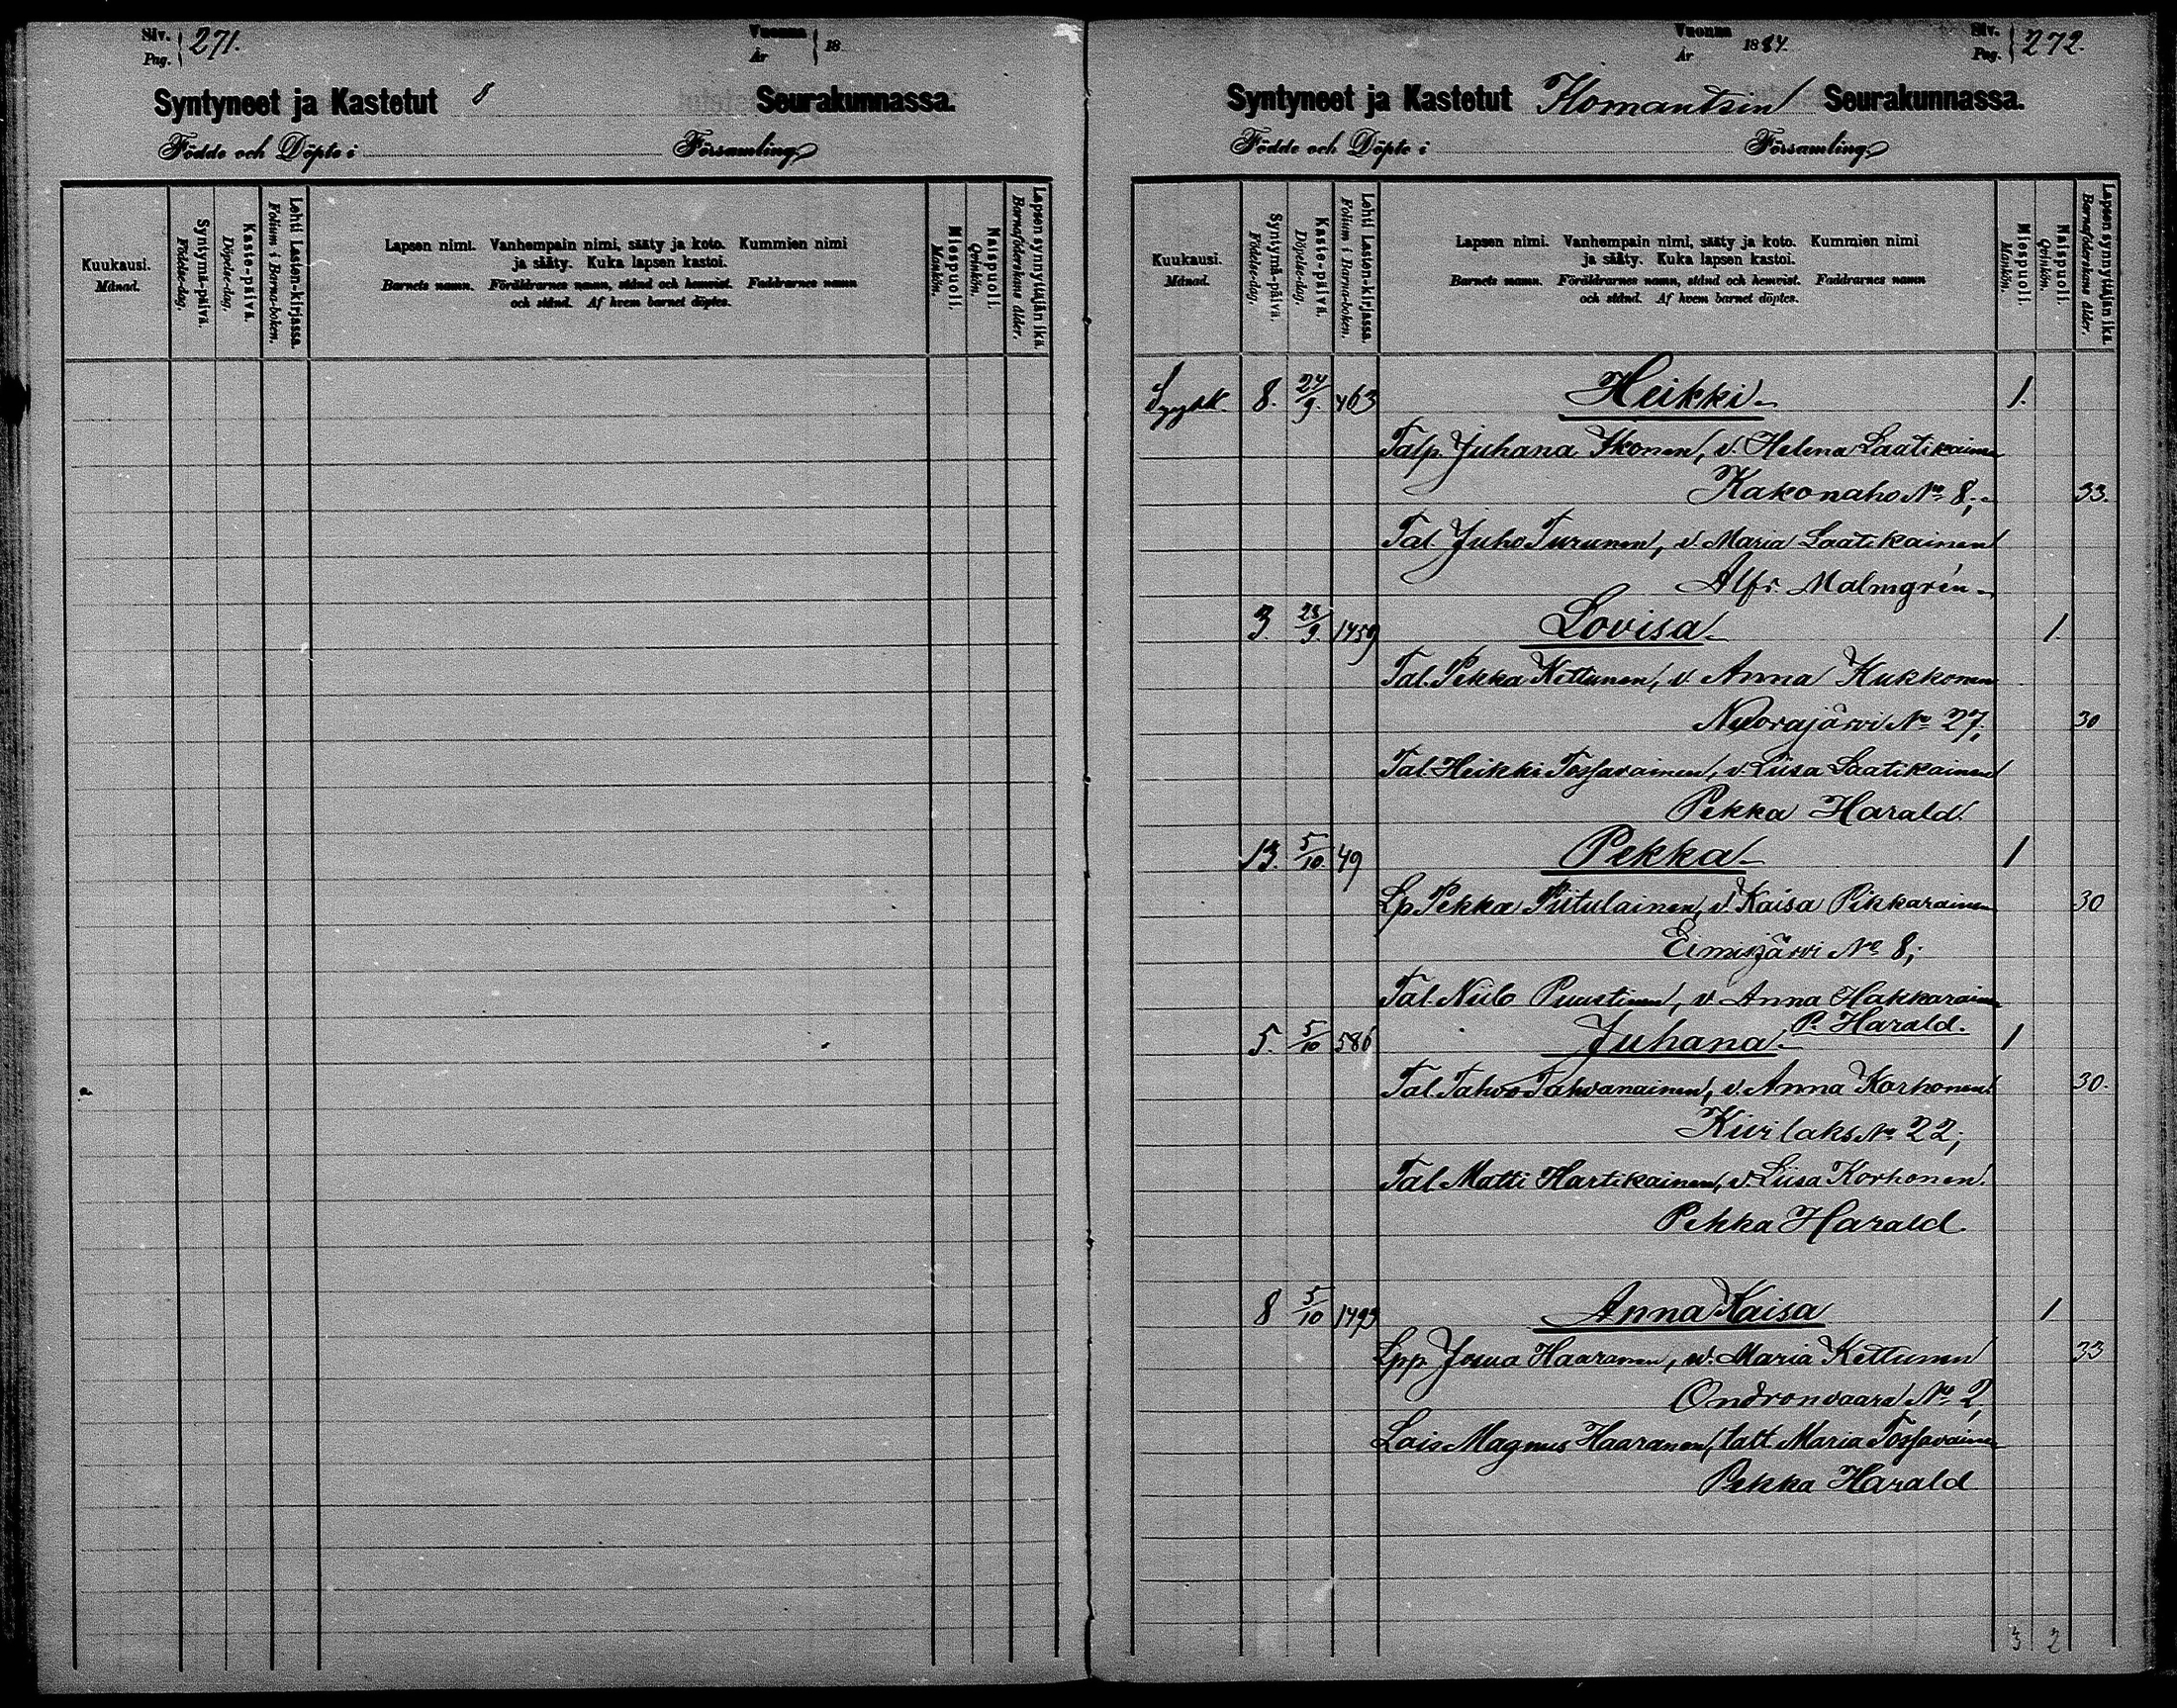 Siv. Pag. 271.
Vuonna År 18
Syntyneet ja Kastetut 8 Seurakunnassa.
Födde och Döpte i Församling
Kuukausi. Månad.
Syntymä-päivä. Födelse-dag.
Kaste-päivä. Döpelse-dag.
Lehti Lasten-kirjassa. Folium i Barna-boken.
Lapsen nimi. Vanhempain nimi, sääty ja koto. Kummien nimi
ja sääty. Kuka lapsen kastoi.
Barnets namn. Föräldrarnes namn, stånd och hemvist. Faddrarnes namn
och stånd. Af hvem barnet döptes.
Miespuoli. Mankön.
Naispuoli. Qvinkön.
Lapsen synnyttäjän ikä. Barnaföderskans ålder.
Vuonna År 1884.
Siv. Pag. 272.
Syntyneet ja Kastetut Ilomantsin Seurakunnassa.
Födde och Döpte i Församling
Kuukausi. Månad.
Syntymä-päivä. Födelse-dag.
Kaste-päivä. Döpelse-dag.
Lehti Lasten-kirjassa. Folium i Barna-boken.
Lapsen nimi. Vanhempain nimi, sääty ja koto. Kummien nimi
ja sääty. Kuka lapsen kastoi.
Barnets namn. Föräldrarnes namn, stånd och hemvist. Faddrarnes namn
och stånd. Af hvem barnet döptes.
Miespuoli. Mankön.
Naispuoli. Qvinkön.
Lapsen synnyttäjän ikä. Barnaföderskans ålder.
Syysk. 8. 24/9. 463 Heikki 1.
Talp. Juhana Ikonen, v. Helena Laatikainen
Kakonaho No 8; 33.
Tal. Juho Turunen, v. Maria Laatikainen
Alfr. Malmgrén
3. 28/9. 1459 Lovisa 1.
Tal. Pekka Kettunen, v. Anna Kukkonen
Nuorajärvi No 27, 30
Tal. Heikki Tossavainen, v. Liisa Laatikainen
Pekka Harald.
13. 5/10. 49 Pekka 1
Lp. Pekka Piitulainen, v. Kaisa Pikkarainen 30
Eimisjärvi No 8;
Tal. Niilo Puustinen, v. Anna Hakkarainen
P. Harald.
5. 5/10 586 Juhana. 1
Tal. Tahvo Tahvanainen, v. Anna Korhonen. 30.
Kivilaks No 22;
Tal. Matti Hartikainen, v. Liisa Korhonen.
Pekka Harald
8 5/10 1493 Anna Kaisa 1
Lpp. Josua Haaranen, v. Maria Kettunen 33
Ondronvaara No 2,
Lois Magnus Haaranen, talt. Maria Tossavainen
Pekka Harald
3 2